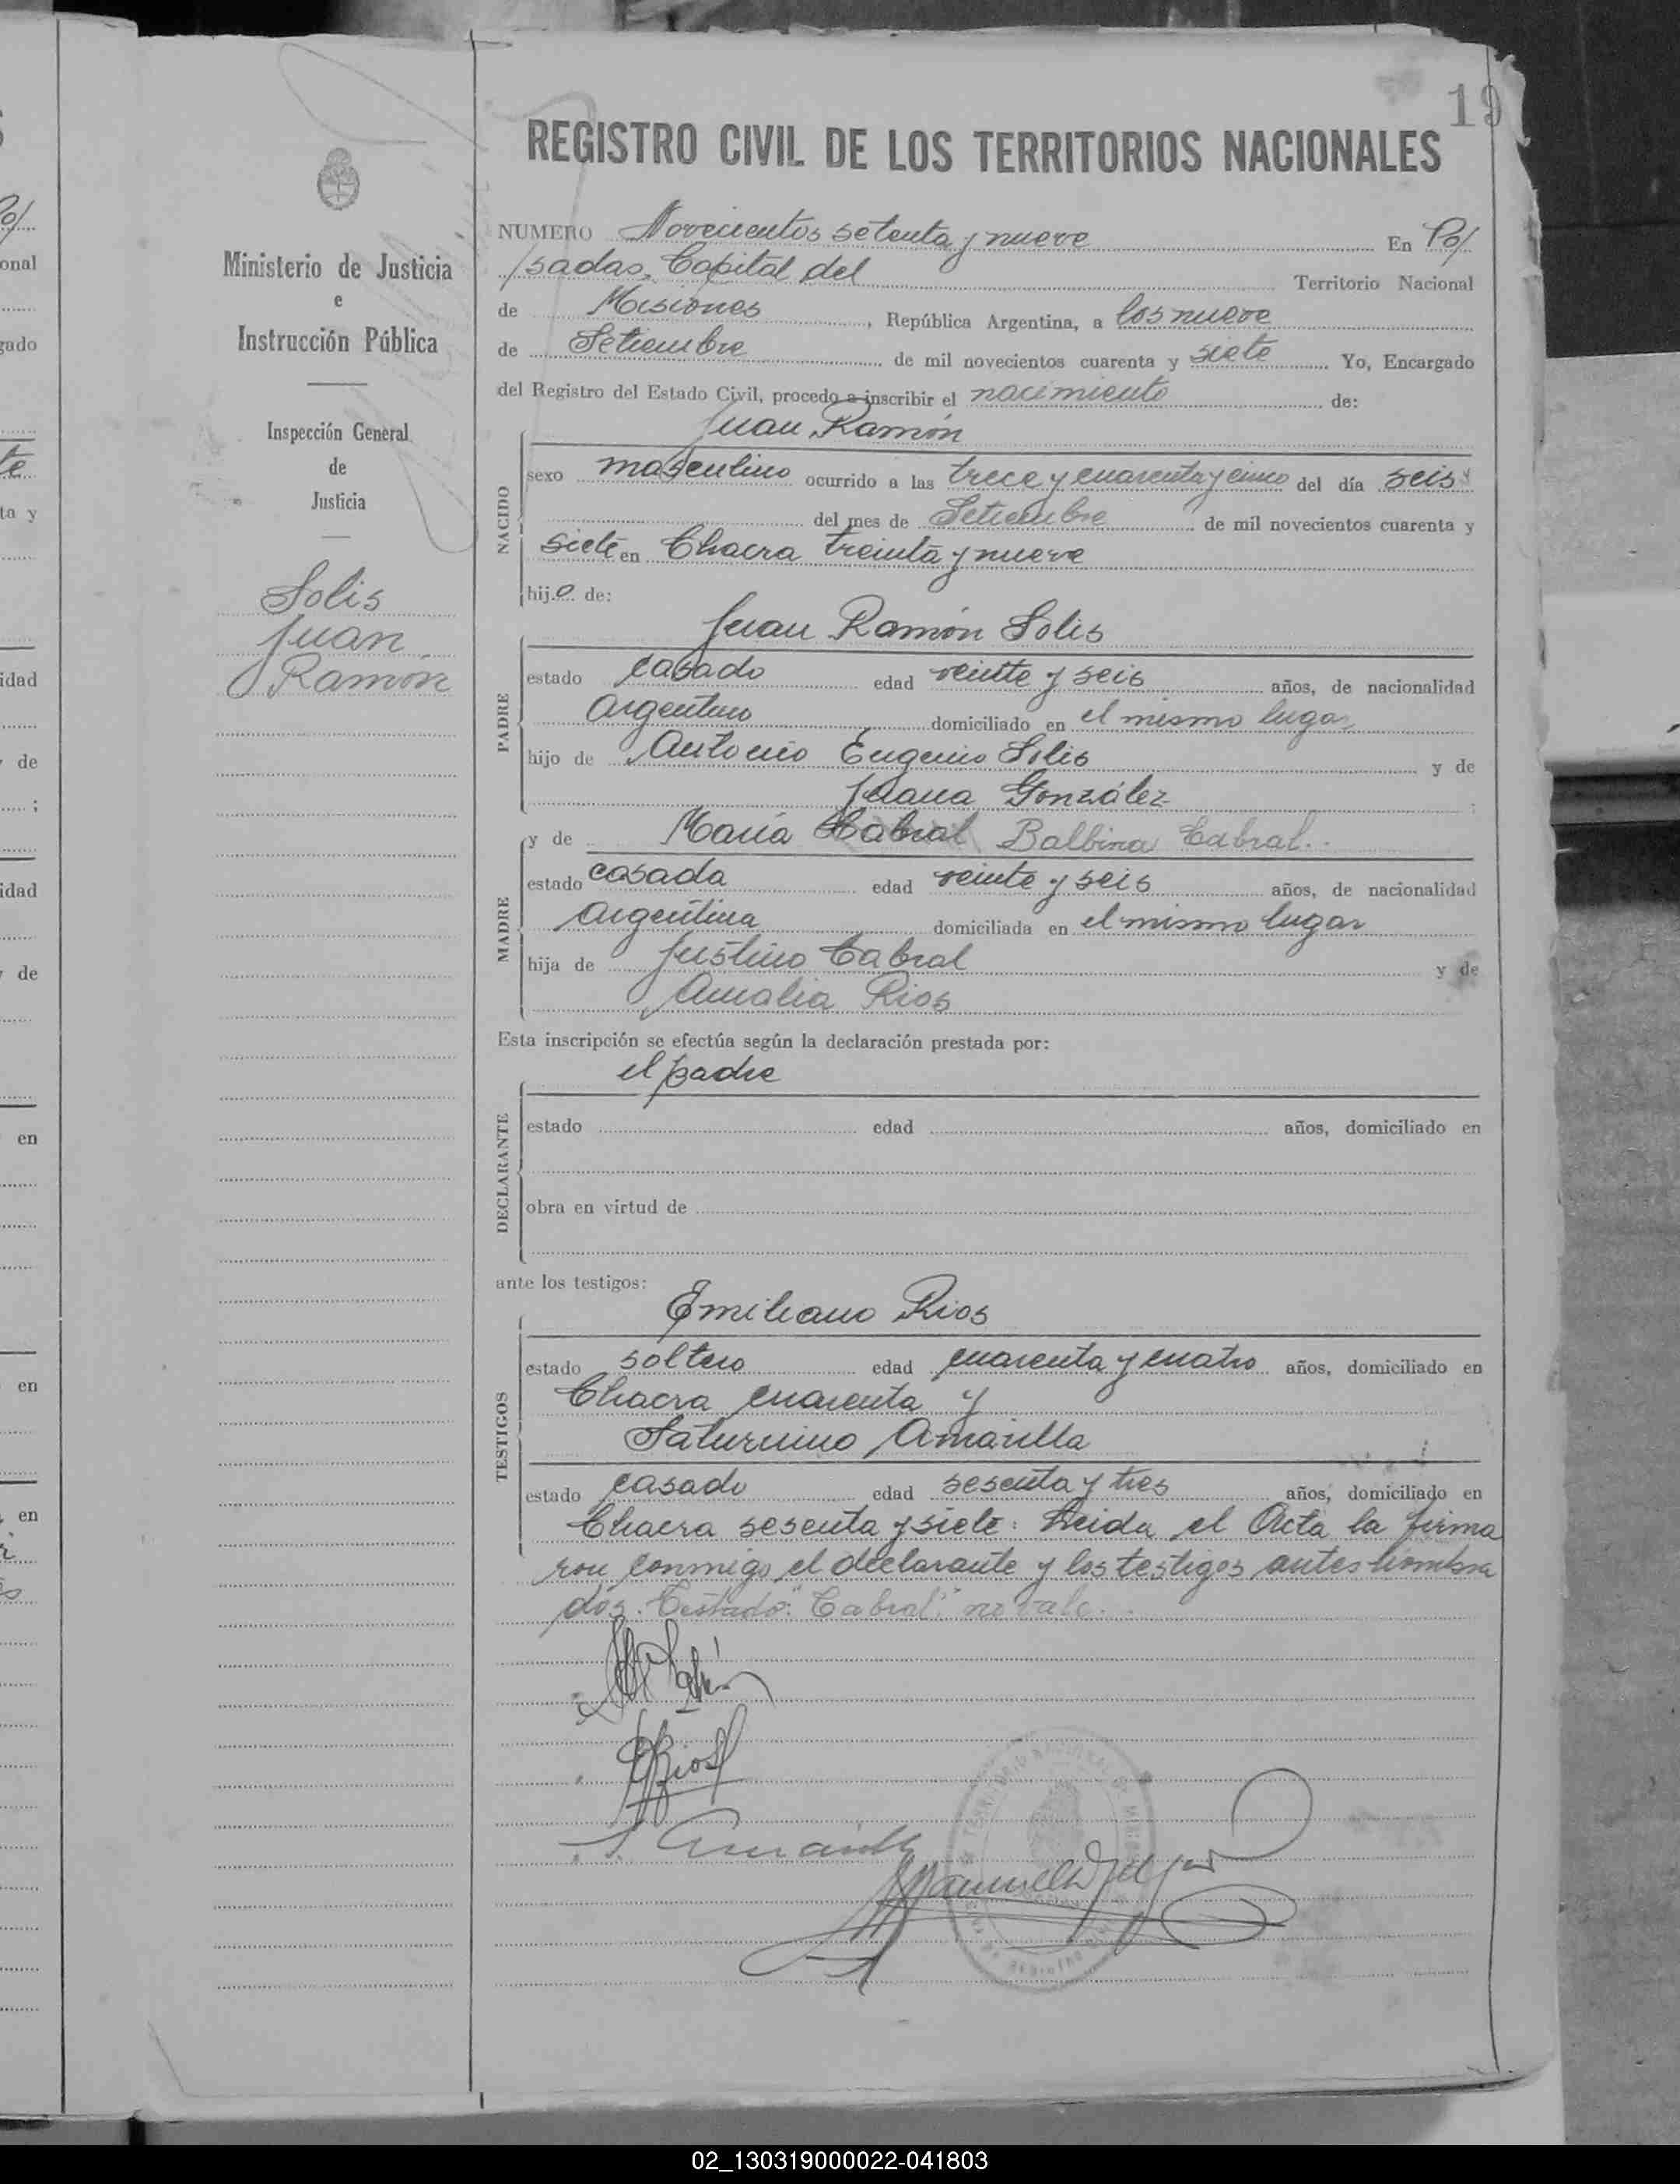 19
REGISTRO CIVIL DE LOS TERRITORIOS NACIONALES
Ministerio de Justicia
e
Instrucción Pública
Inspección General
de
Justicia
Solis
Juan
Ramón
NUMERO Novecientos setenta y nueve En Po/
/sadas, Capital del Territorio Nacional
de Misiones, República Argentina, a los nueve
de Setiembre de mil novecientos cuarenta y siete Yo, Encargado
del Registro del Estado Civil, procedo a inscribir el nacimiento de:
Juan Ramón
NACIDO
sexo masculino ocurrido a las trece y cuarenta y cinco del día seis
del mes de Setiembre de mil novecientos cuarenta y
siete en Chacra treinta y nueve
hijo de:
PADRE
Juan Ramón Solis
estado casado edad veinte y seis años, de nacionalidad
Argentino domiciliado en el mismo lugar
hijo de Antonio Eugenio Solis y de
Juana González
MADRE
y de María Cabral Balbina Cabral.
estado casada edad veinte y seis años, de nacionalidad
Argentina domiciliada en el mismo lugar
hija de Justino Cabral y de
Amalia Rios
Esta inscripción se efectúa según la declaración prestada por:
el padre
DECLARANTE
estado edad años, domiciliado en
obra en virtud de
ante los testigos:
TESTIGOS
Emiliano Rios
estado soltero edad cuarenta y cuatro años, domiciliado en
Chacra cuarenta y
Saturnino Amarilla
estado casado edad sesenta y tres años, domiciliado en
Chacra sesenta y siete: Leida el Acta la firma
ron conmigo el declarante y los testigos antes nombra
dos. Testado: "Cabral": no vale.
02_130319000022-041803